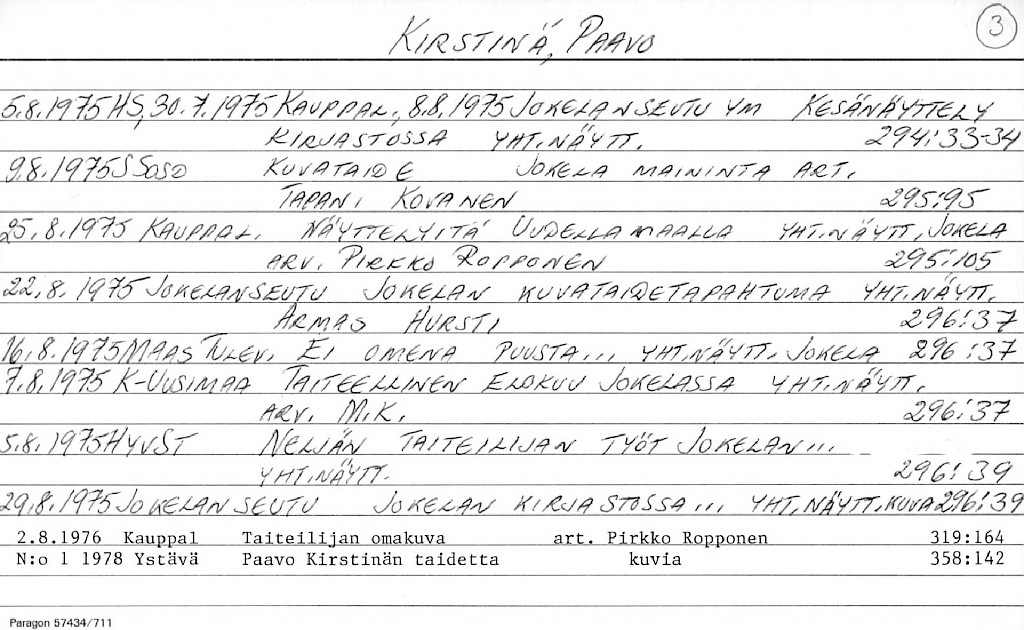 3
KIRSTINÄ, PAAVO
5.8.1975 HS, 30.7.1975 KAUPPAL., 8.8.1975 JOKELANSEUTU YM KESÄNÄYTTELY
KIRJASTOSSA YHT.NÄYTT. 294:33-34
9.8.1975 SSOSD KUVATAIDE JOKELA MAININTA ART.
TAPANI KOVANEN 295:95
25.8.1975 KAUPPAL. NÄYTTELYITÄ UUDELLAMAALLA YHT.NÄYTT, JOKELA
ARV. PIRKKO ROPPONEN 295:105
22.8.1975 JOKELANSEUTU JOKELAN KUVATAIDETAPAHTUMA YHT.NÄYTT.
ARMAS HURSTI 296:37
16.8.1975 MAAS TULEV. EI OMENA PUUSTA... YHT.NÄYTT. JOKELA 296:37
7.8.1975 K-UUSIMAA TAITEELLINEN ELOKUU JOKELASSA YHT.NÄYTT.
ARV. M.K. 296:37
5.8.1975 HYVST NELJÄN TAITEILIJAN TYÖT JOKELAN...
YHT.NÄYTT. 296:39
29.8.1975 JOKELAN SEUTU JOKELAN KIRJASTOSSA... YHT.NÄYTT. KUVA 296:39
2.8.1976 Kauppal Taiteilijan omakuva art. Pirkko Ropponen 319:164
N:o 1 1978 Ystävä Paavo Kirstinän taidetta kuvia 358:142
Paragon 57434/711